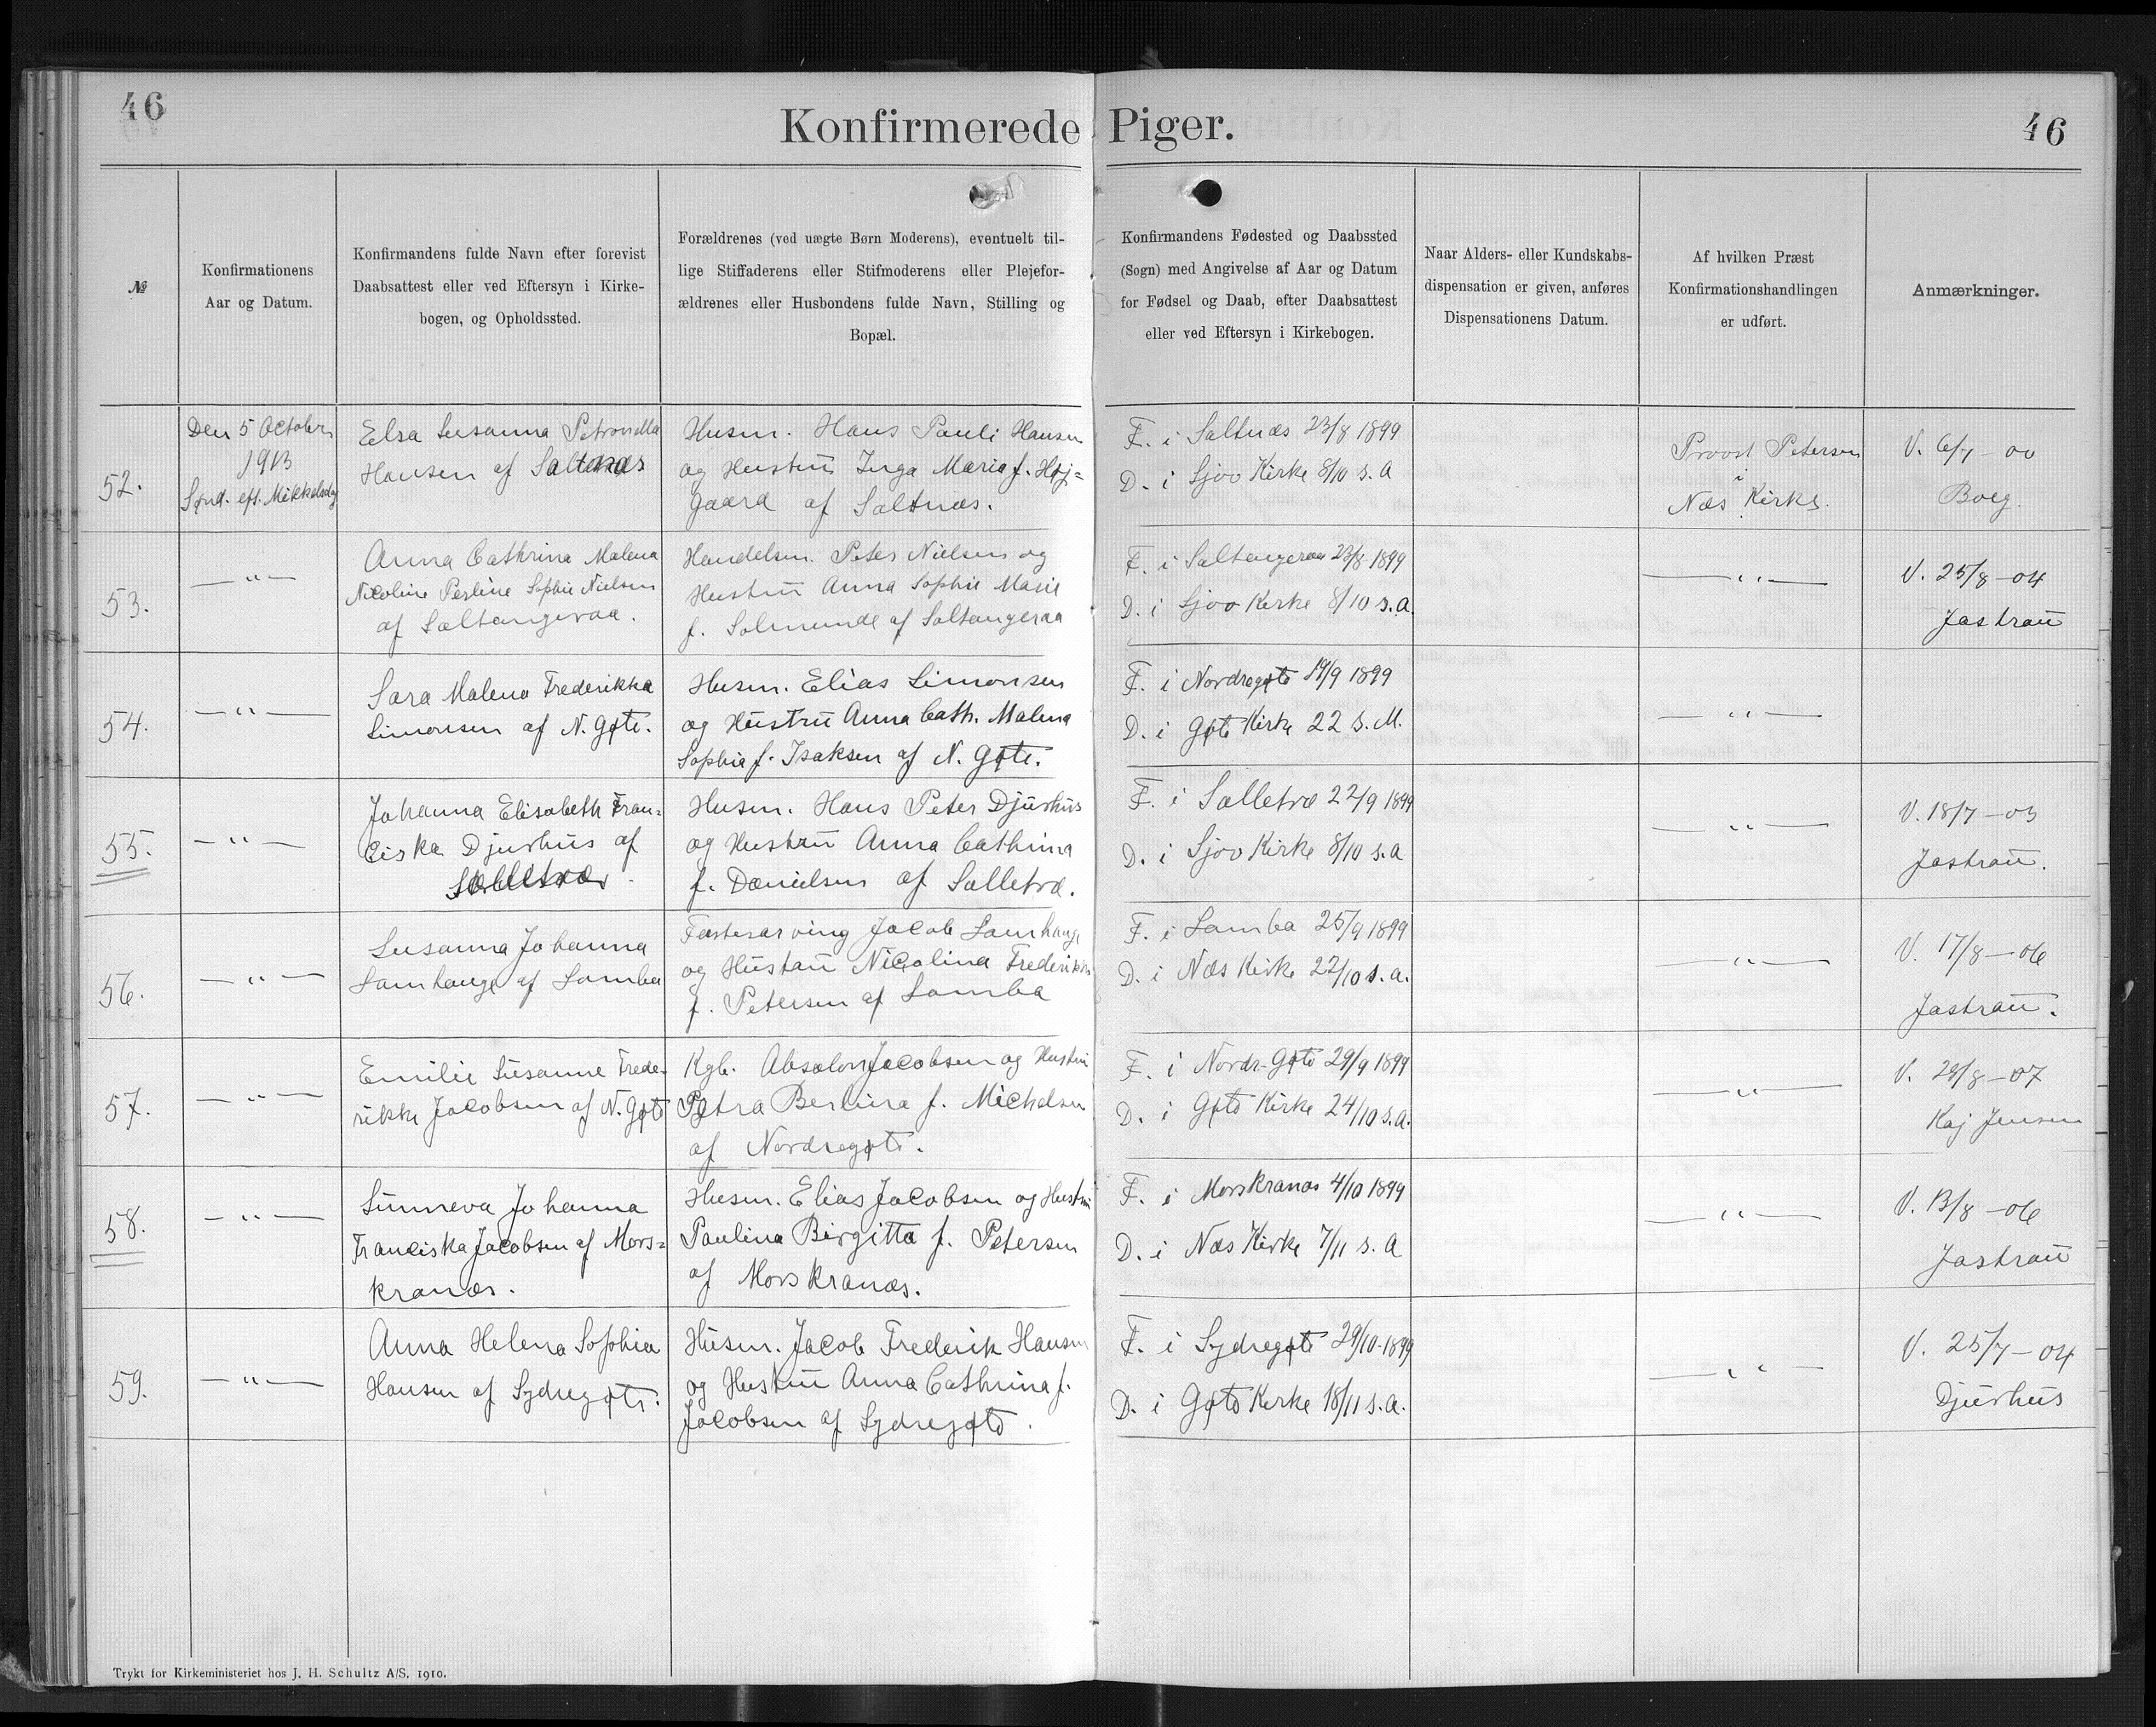 46
Konfirmerede Piger.
46
№
Konfirmationens
Aar og Datum.
Konfirmandens fulde Navn efter forevist
Daabsattest eller ved Eftersyn i Kirke-
bogen, og Opholdssted.
Forældrenes (ved uægte Børn Moderens), eventuelt til-
lige Stiffaderens eller Stifmoderens eller Plejefor-
ældrenes eller Husbondens fulde Navn, Stilling og
Bopæl.
Konfirmandens Fødested og Daabssted
(Sogn) med Angivelse af Aar og Datum
for Fødsel og Daab, efter Daabsattest
eller ved Eftersyn i Kirkebogen.
Naar Alders- eller Kundskabs-
dispensation er given, anføres
Dispensationens Datum.
Af hvilken Præst
Konfirmationshandlingen
er udført.
Anmærkninger.
52.
Den 5 October
1913
Sønd. eft. Mikkelsdag
Elsa Susanna Petronella
Hansen af Saltnæs
Husm. Hans Pauli Hansen
og Hustrü Inga Maria f. Høj=
gaard af Saltnæs.
F. i Saltnæs 23/8 1899
D. i Sjov Kirke 8/10 s. A
Provst Petersen
i
Næs Kirke.
V. 6/7 - 00
Boeg.
53.
— " —
Anna Cathrina Malena
Nicoline Perline Sophie Nielsen
af Saltangeraa.
Handelsm. Peter Nielsen og
Hustrü Anna Sophie Marie
f. Solmunde af Saltangeraa
F. i Saltangeraa 23/8 1899
D. i Sjov Kirke 8/10 s.a.
— " —
V. 25/8 - 04
Jastraü
54.
— " —
Sara Malena Frederikka
Simonsen af N. Gøte.
Husm. Elias Simonsen
og Hüstrü Anna Cath. Malena
Sophia f. Isaksen af N. Gøte.
F. i Nordregøte 19/9 1899
D. i Gøte Kirke 22 s. M.
— " —
55.
— " —
Johanna Elisabeth Fran=
ciska Djurhüs af
Sælletræ.
Husm. Hans Peter Djürhüs
og Hustrü Anna Cathrina
f. Danielsen af Selletræ.
F. i Selletræ 22/9 1899
D. i Sjov Kirke 8/10 s.a
— " —
V. 18/7 - 03
Jastraü.
56.
— " —
Susanna Johanna
Lamhauge af Lamba
Fæstesarving Jacob Lamhauge
og Hüstrü Nicolina Frederikke
f. Petersen af Lamba
F. i Lamba 25/9 1899
D. i Næs Kirke 22/10 s.a.
— " —
V. 17/8 - 06
Jastraü.
57.
— " —
Emilie Süsanne Frede-
rikke Jacobsen af N. Gøte
Kgb. Absalon Jacobsen og Hustrü
Petra Berlina f. Michelsen
af Nordregøte.
F. i Nordr. Gøte 29/9 1899
D. i Gøte Kirke 24/10 s.a.
— " —
V. 29/8 - 07
Kaj Jensen
58.
— " —
Sünneva Johanna
Franciska Jacobsen af Mors=
kranæs.
Husm. Elias Jacobsen og Hustrü
Paulina Birgitta f. Petersen
af Morskranæs.
F. i Morskranæs 4/10 1899
D. i Næs Kirke 7/11 s. A
— " —
V. 13/8 - 06
Jastraü
59.
— " —
Anna Helena Sophia
Hansen af Sydregøte.
Hüsm. Jacob Frederik Hansen
og Hustrü Anna Cathrina f.
Jacobsen af Sydregøte.
F. i Sydregøte 29/10-1899
D. i Gøte Kirke 18/11 s.a.
— " —
V. 25/7 - 04
Djürhüs
Trykt for Kirkeministeriet hos J. H. Schultz A/S. 1910.